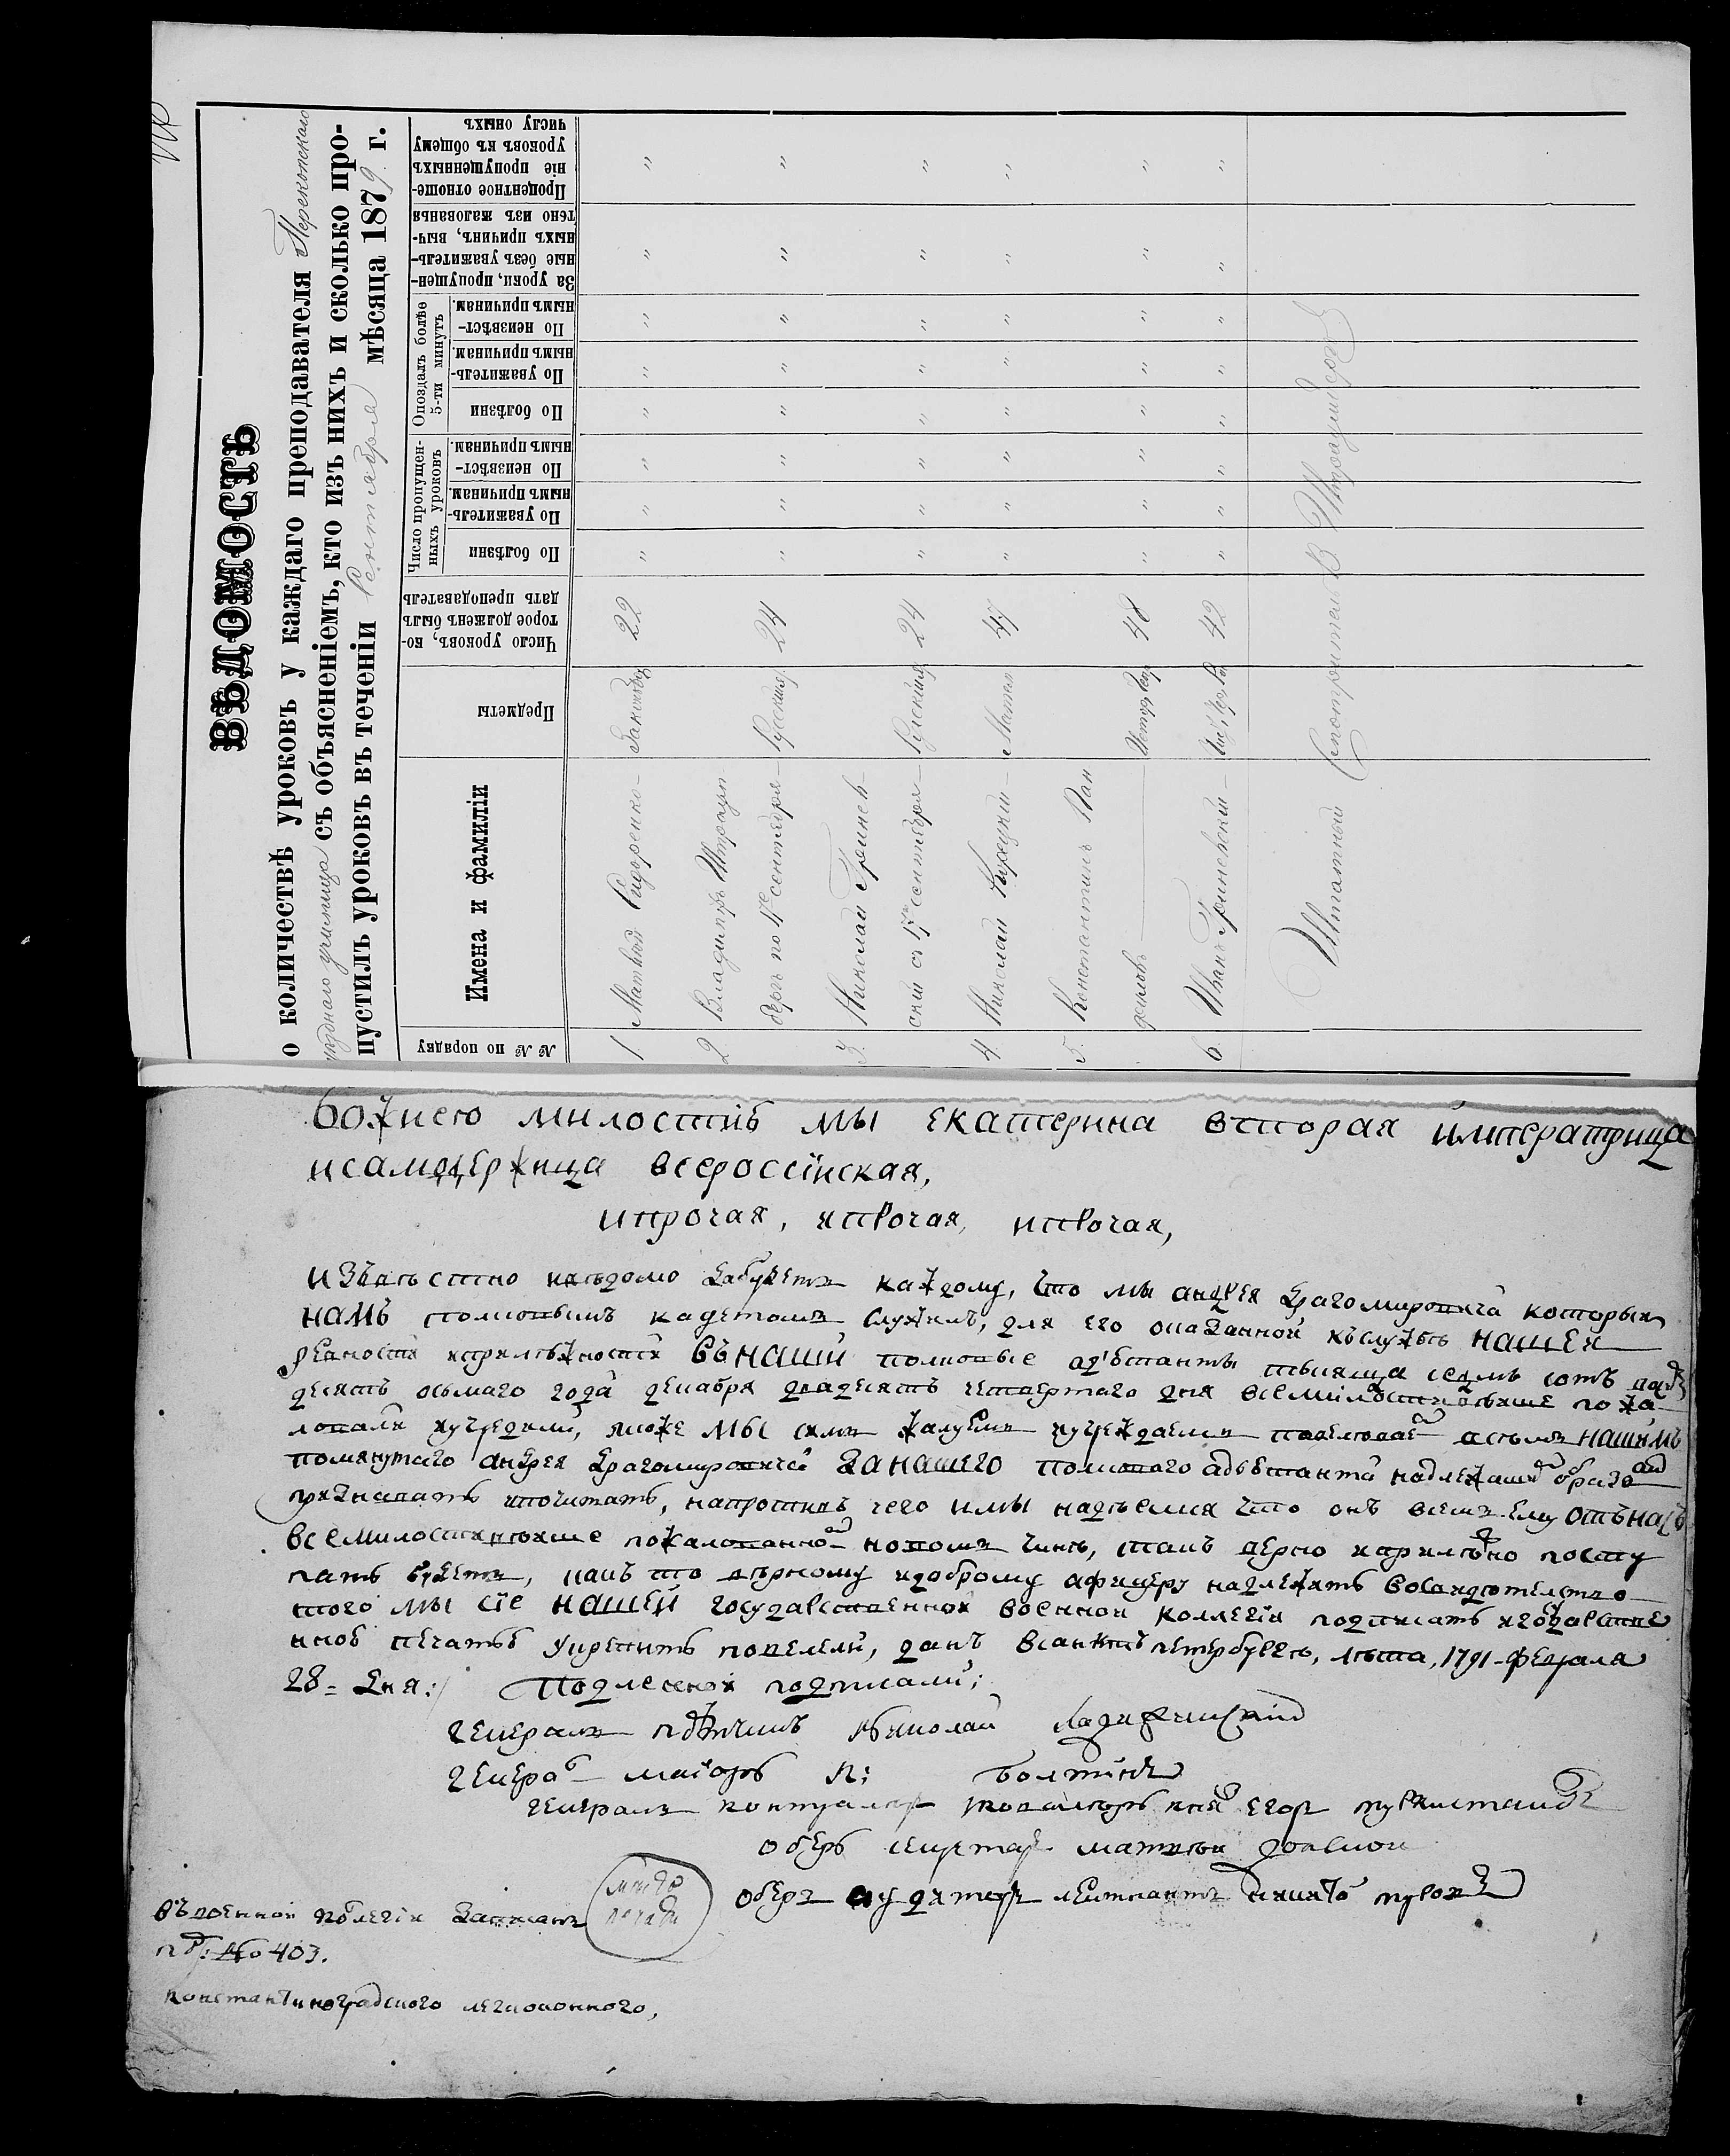 ВѢДОМОСТЬ
о количествѣ уроковъ у каждаго преподавателя Перекопскаго
уѣзднаго училища съ объясненіемъ, кто изъ нихъ и сколько про-
пустилъ уроковъ въ теченіи Сентября мѣсяца 1879 г.
№№ по порядку
Имена и фамиліи
Предметы
Число уроковъ, ко-
торое долженъ былъ
дать преподаватель
Число пропущен-
ныхъ уроковъ
По болѣзни
По уважитель-
нымъ причинам.
По неизвѣст-
нымъ причинам.
Опоздалъ болѣе
5-ти минутъ
По болѣзни
По уважитель-
нымъ причинам.
По неизвѣст-
нымъ причинам.
За уроки, пропущен-
ные безъ уважитель-
ныхъ причинъ, выч-
тено изъ жалованья
Процентное отноше-
ніе пропущенныхъ
уроковъ къ общему
числу оныхъ
1. Матвей Сидоренко - 22 " " " " " " " "
2. Владиміръ Штраух
бергъ по 17е сентября - Русскій яз. 24 " " " " " " " "
3. Николай Гринев-
скій съ 17го сентября - Русскій яз. 24 " " " " " " " "
4. Николай - Матем 47 " " " " " " " "
5. Константинъ Пан
филовъ 48 " " " " " " " "
6. Иванъ Гриневскій - 42 " " " " " " " "
Штатный Смотритель В
божиею милостию мы екатерина вторая императрица
исамодержица всероссійская,
ипрочая, ипрочая, ипрочая,
извѣстно ивѣдомо дабудетъ каждому, что мы андрея драгомировича которыи
намъ полковымъ кадетомъ служилъ, для его оказанной къслужбѣ нашеи
ревности иприлѣжности въ наши полковые адъютанты тысяща седмь сотъ
десятъ осьмаго года декабря двадесятъ четвертаго дня всемилостивѣйше пожа
ловали иучредили, якоже мы симъ жалуемъ иучреждаемъ повелевае всѣмъ нашимъ
помянутаго андрея драгомировича за нашего полковаго адъютанта надлежаши образо
признавать ипочитать, напротивъ чего имы надѣемся что онъ всемъ ему отънасъ
всемилостивѣйше пожалованно новомъ чинѣ, такъ верно иприлѣжно посту
пать будетъ, какъ то вѣрному идоброму афицеру надлежитъ восвидѣтелство
того мы сіе нашей государственной военной коллегіи подписать игосударстве
нною печатью укрепить повелели, данъ всанктъ петербургѣ, лѣта, 1791 - февраля
28 = дня:/ Подлесной подписали:
генералъ николай
генера маіоръ п: болтинъ
генералъ контролер егор
оберъ секретар матвеи
оберъ аудиторъ леитнантъ
мѣсто
печати
въ военной колегіи записанъ
под: № 403.
константиноградского легионного,